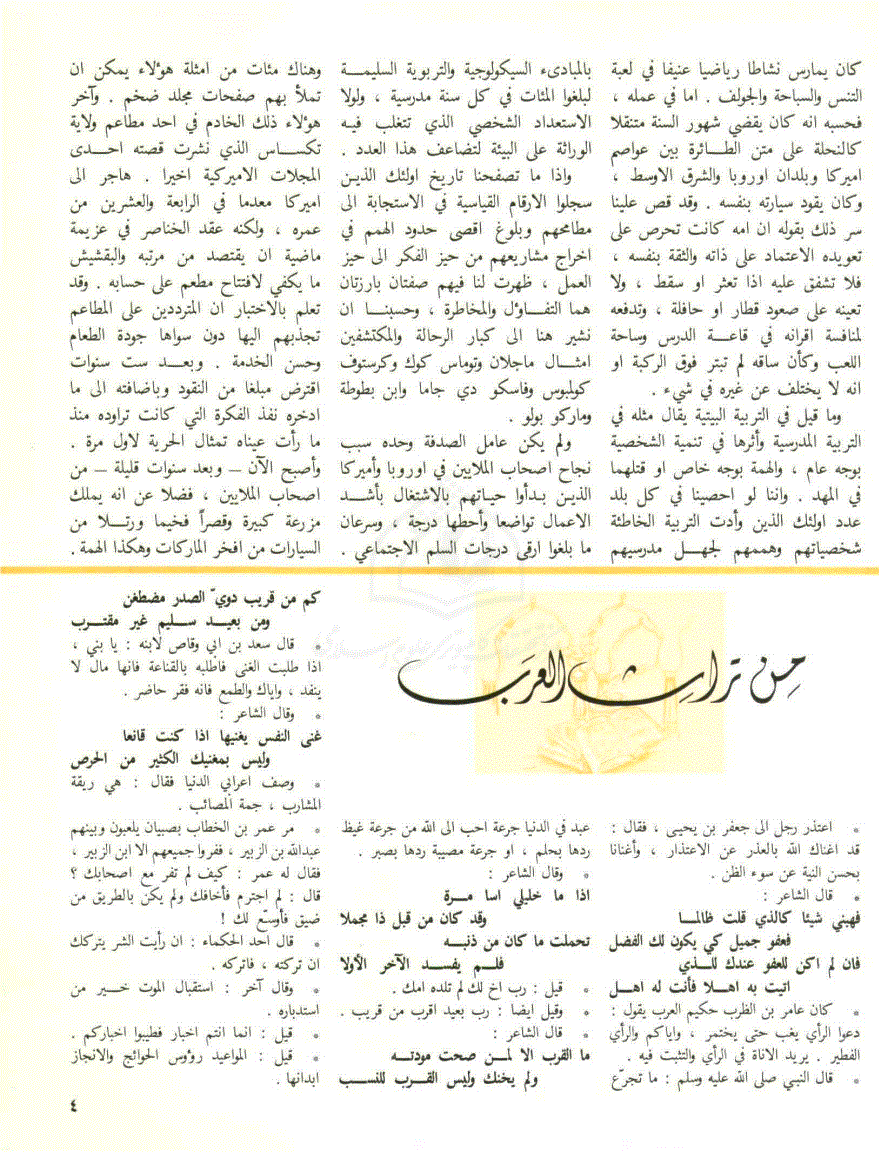 كان يمارس نشاطا رياضيا عنيفا في لعبة
التنس والسباحة والجولف . اما في عمله ،
فحسبه انه كان يقضي شهور السنة متنقلا
كالنحلة على متن الطـــائرة بين عواصم
اميركا وبلدان اوروبا والشرق الاوسط ،
وكان يقود سيارته بنفسه . وقد قص علينا
سر ذلك بقوله ان امه كانت تحرص على
تعويده الاعتماد على ذاته والثقة بنفسه ،
فلا تشفق عليه اذا تعثر او سقط ، ولا
تعينه على صعود قطار او حافلة ، وتدفعه
لمنافسة اقرانه في قاعـــة الدرس وساحة
اللعب وكأن ساقه لم تبتر فوق الركبة او
انه لا يختلف عن غيره في شيء .
وما قيل في التربية البيتية يقال مثله في
التربية المدرسية وأثرها في تنمية الشخصية
بوجه عام ، والهمة بوجه خاص او قتلهما
في المهد . واننا لو احصينا في كل بلد
عدد اولئك الذين وأدت التربية الخاطئة
شخصياتهم وهممهم لجهـــل مدرسيهم
بالمبادىء السيكولوجية والتربوية السليمـــة
لبلغوا المئات في كل سنة مدرسية ، ولولا
الاستعداد الشخصي الذي تتغلب فيـه
الوراثة على البيئة لتضاعف هذا العدد .
واذا ما تصفحنا تاريخ اولئك الذيـن
سجلوا الارقام القياسية في الاستجابة الى
مطامحهم وبلوغ اقصى حدود الهمم في
اخراج مشاريعهم من حيز الفكر الى حيز
العمل ، ظهرت لنا فيهم صفتان بارزتان
هما التفـــاؤل والمخاطرة ، وحسبنـــا ان
نشير هنا الى كبار الرحالة والمكتشفين
امثـــال ماجلان وتوماس كوك وكرستوف
كولمبوس وفاسكو دي جاما وابن بطوطة
وماركو بولو .
ولم يكن عامل الصدفة وحده سبب
نجاح اصحاب الملايين في اوروبا وأميركا
الذيـن بـدأوا حيـاتهم بالاشتغال بأشـــد
الاعمال تواضعا وأحطها درجة ، وسرعان
ما بلغوا ارقى درجات السلم الاجتماعي .
وهناك مئات من امثلة هؤلاء يمكن ان
تملأ بهم صفحات مجلد ضخم . وآخر
هؤلاء ذلك الخادم في احد مطاعم ولاية
تكســـاس الذي نشرت قصته احـــدى
المجلات الاميركية اخيرا . هاجر الى
اميركا معدما في الرابعة والعشرين من
عمره ، ولكنه عقد الخناصر في عزيمة
ماضية ان يقتصد من مرتبه والبقشيش
ما يكفي لافتتاح مطعم على حسابه . وقد
تعلم بالاختبار ان المترددين على المطاعم
تجذبهم اليها دون سواها جودة الطعام
وحسن الخدمة . وبعـــد ست سنوات
اقترض مبلغا من النقود وباضافته الى ما
ادخره نفذ الفكرة التي كانت تراوده منذ
ما رأت عيناه تمثال الحرية لاول مرة .
وأصبح الآن – وبعد سنوات قليلة – من
اصحاب الملايين ، فضلا عن انه يملك
مزرعة كبيرة وقصراً فخيما ورتـــلا من
السيارات من افخر الماركات وهكذا الهمة .
من تراث العرب
* اعتذر رجل الى جعفر بن يحيـى ، فقال :
قد اغناك الله بالعذر عن الاعتذار ، وأغنانا
بحسن النية عن سوء الظن .
* قال الشاعر :
فهبني شيئا كالذي قلت ظالمـــا
فعفو جميل كي يكون لك الفضل
فان لم اكن للعفو عندك للـــذي
اتيت به اهـــلا فأنت له اهـــل
* كان عامر بن الظرب حكيم العرب يقول :
دعوا الرأي يغب حتى يختمر ، واياكم والرأي
الفطير . يريد الاناة في الرأي والتثبت فيه .
* قال النبي صلى الله عليه وسلم : ما تجرّع
عبد في الدنيا جرعة احب الى الله من جرعة غيظ
ردها بحلم ، او جرعة مصيبة ردها بصبر .
* وقال الشاعر :
اذا ما خليلي اسا مـــرة
وقد كان من قبل ذا مجملا
تحملت ما كان من ذنبـــه
فلـــم يفســـد الآخر الأولا
* قيل : رب اخ لك لم تلده امك .
* وقيل ايضا : رب بعيد اقرب من قريب .
* قال الشاعر :
ما القرب الا لمـــن صحت مودتـــه
ولم يخنك وليس القـــرب للنســـب
كم من قريب دويّ الصدر مضطغن
ومن بعيـــد سليم غير مقتـــرب
* قال سعد بن ابي وقاص لابنه : يا بني ،
اذا طلبت الغنى فاطلبه بالقناعة فانها مال لا
ينفد ، واياك والطمع فانه فقر حاضر .
* وقال الشاعر :
غنى النفس يغنيها اذا كنت قانعا
وليس بمغنيك الكثير من الحرص
* وصف اعرابي الدنيا فقال : هي ريقة
المشارب ، جمة المصائب .
* مر عمر بن الخطاب بصبيان يلعبون وبينهم
عبدالله بن الزبير ، ففروا جميعهم الا ابن الزبير ،
فقال له عمر : كيف لم تفر مع اصحابك ؟
قال : لم اجترم فأخافك ولم يكن بالطريق من
ضيق فأوسّع لك !
* قال احد الحكماء : ان رأيت الشر يتركك
ان تركته ، فاتركه .
* وقال آخر : استقبال الموت خـــير من
استدباره .
* قيل : انما انتم اخبار فطيبوا اخباركم .
* قيل : المواعيد رؤوس الحوائج والانجاز
ابدانها .
٤